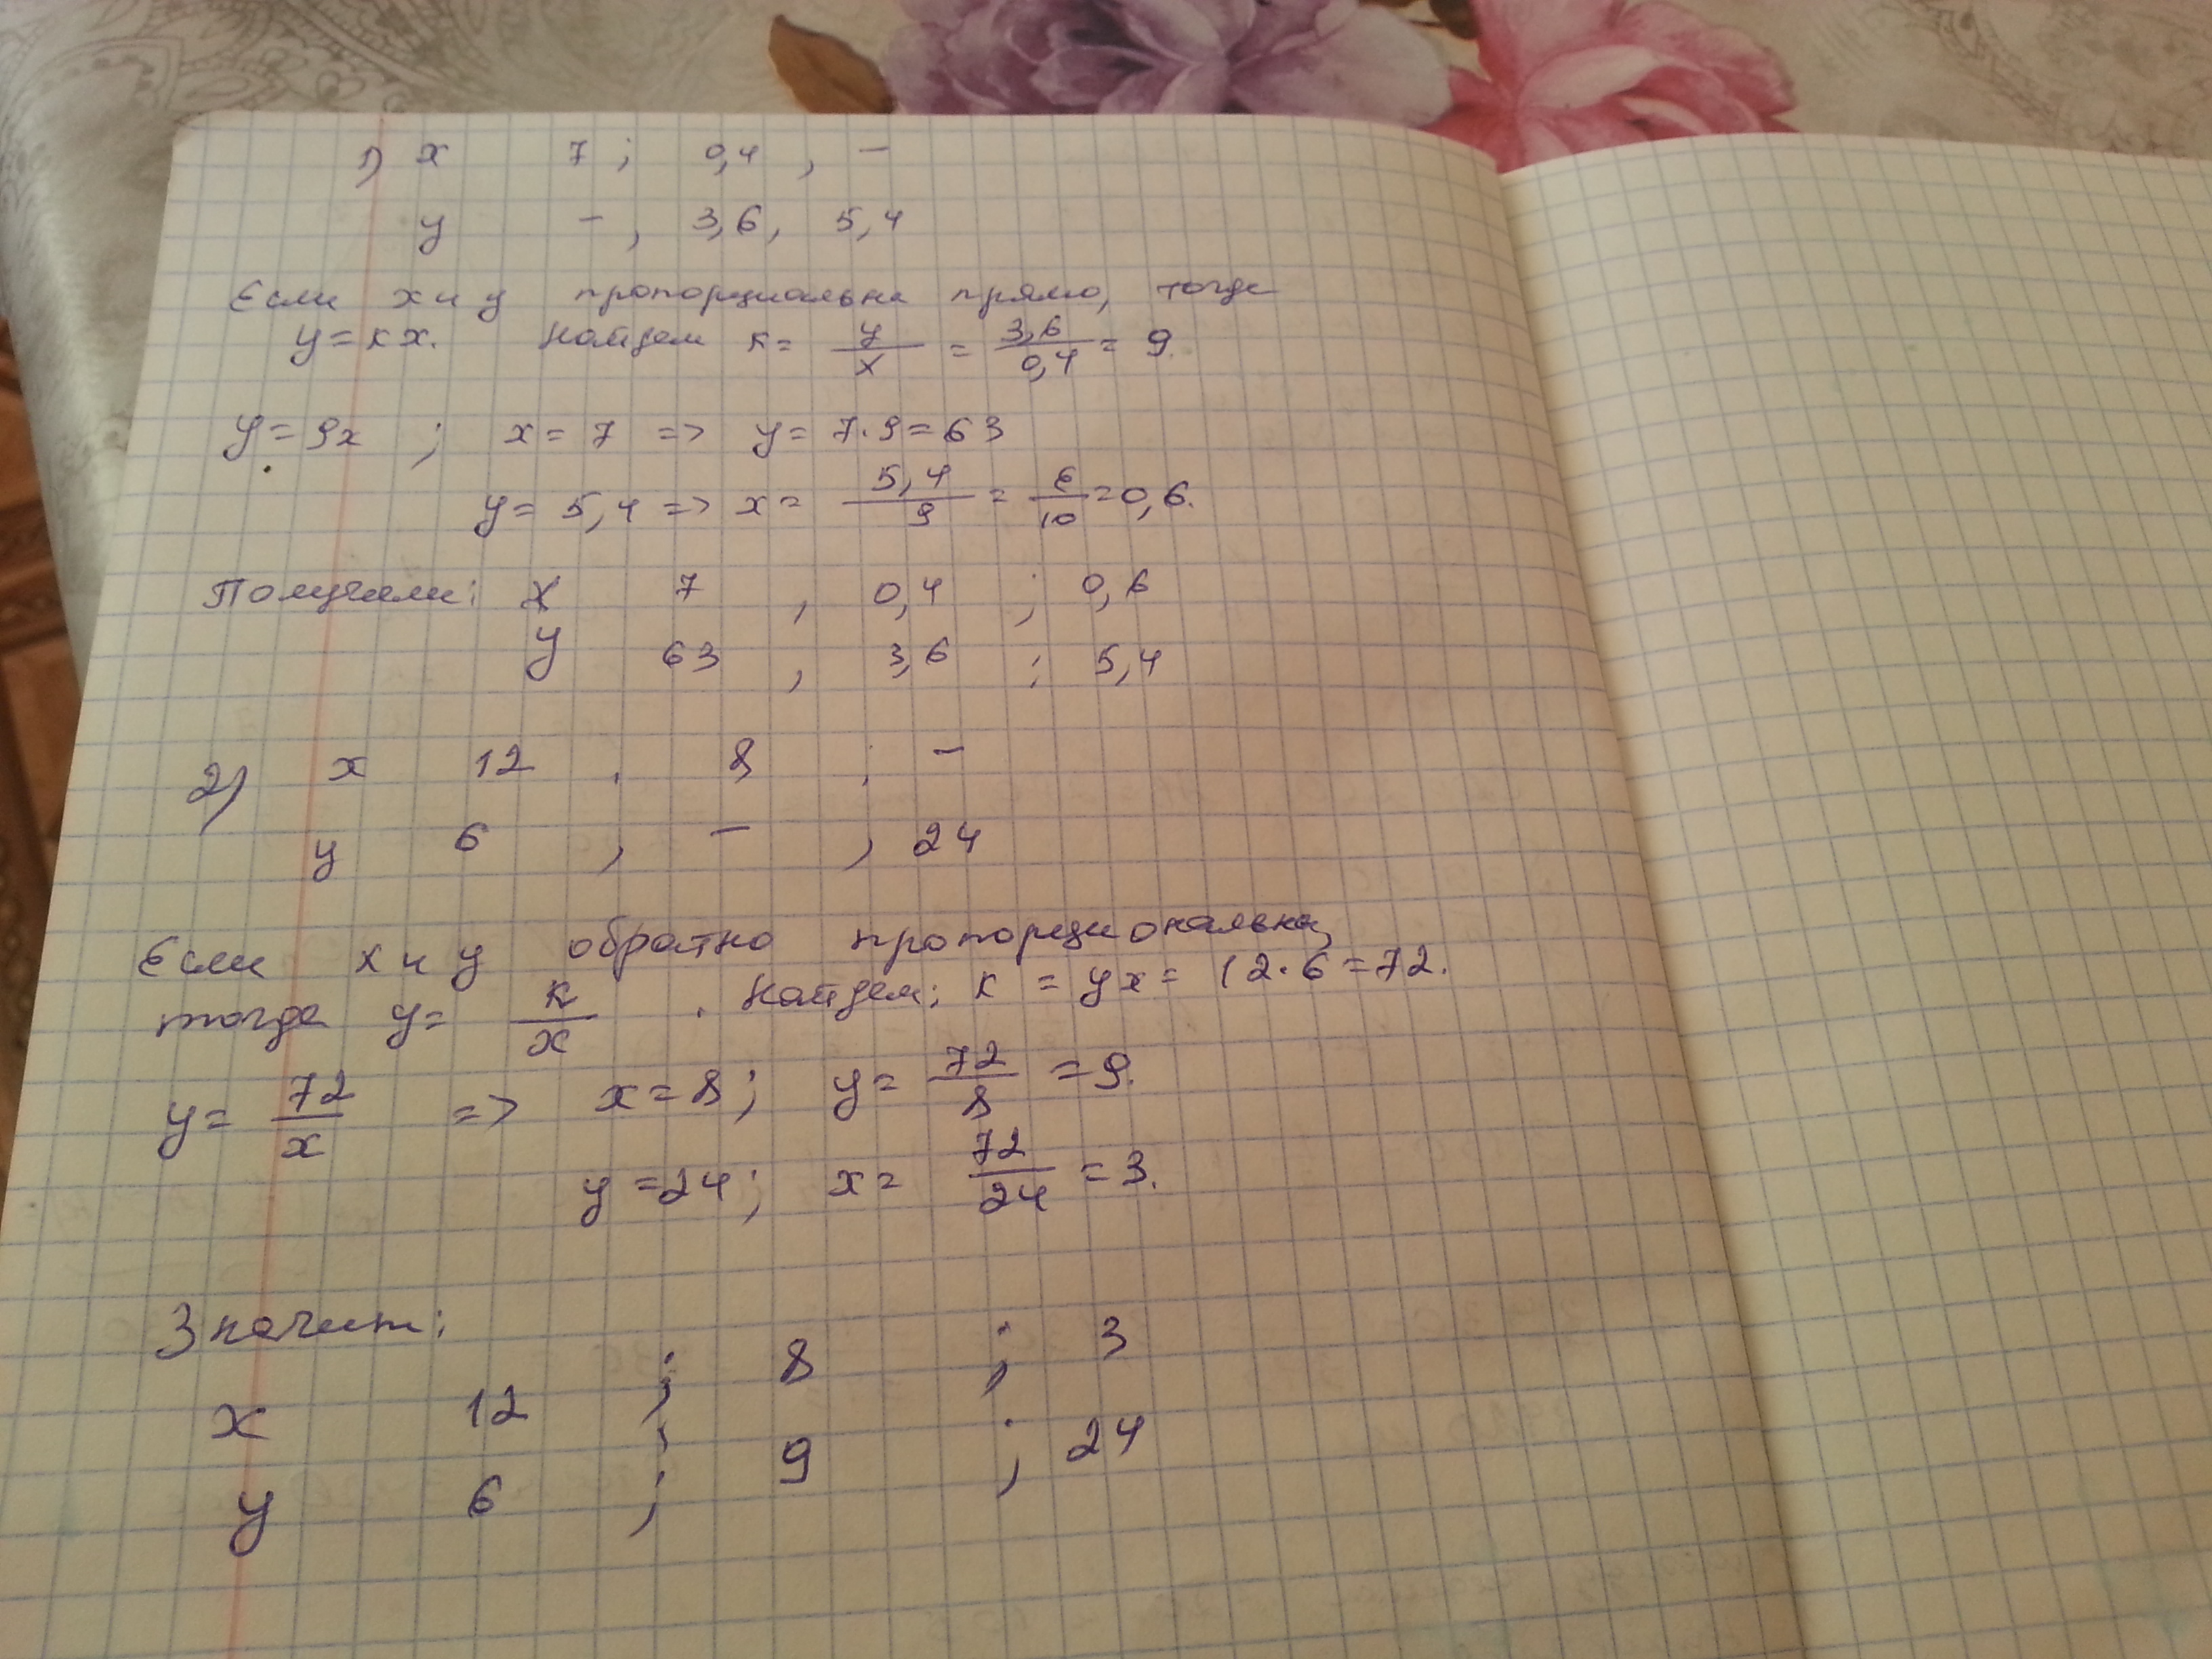 1) x 7 ; 0,4 , –
y – , 3,6 , 5,4
Если x и y пропорциальна прямо, тогда
y = кx. Найдем к = y/x = 3,6/0,4 = 9.
y = 9x ; x = 7 => y = 7·9 = 63
y = 5,4 => x = 5,4/9 = 6/10 = 0,6.
Получили: x 7 , 0,4 ; 0,6
y 63 , 3,6 ; 5,4
2) x 12 , 8 ; –
y 6 , – , 24
Если x и y обратно пропорциональна,
тогда y = к/x . Найдем: к = yx = 12·6 = 72.
y = 72/x => x = 8; y = 72/8 = 9.
y = 24; x = 72/24 = 3.
Значит:
x 12 ; 8 ; 3
y 6 ; 9 ; 24